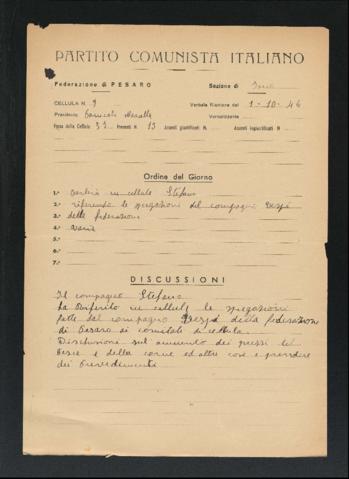 PARTITO COMUNISTA ITALIANO
Federazione di PESARO Sezione di
CELLULA N. 9 Verbale Riunione del 1-10-46
Presidente Verbalizzante
Forza della Cellula 33 Presenti N. 13 Assenti giustificati N. Assenti ingiustificati N.
Ordine del Giorno
1.° in cellula Stefano
2.° riferendo le spiegazioni del compagni
3.° della federazione
4.° varie
5.°
6.°
7.°
DISCUSSIONI
Il compagno Stefano
ha riferito in cellula le spiegazioni
fatte dal compagno della federazione
di Pesaro ai comitati di cellula.
Discussione sul aumento dei prezzi
e della carne ed altre cose e prendere
dei provvedimenti